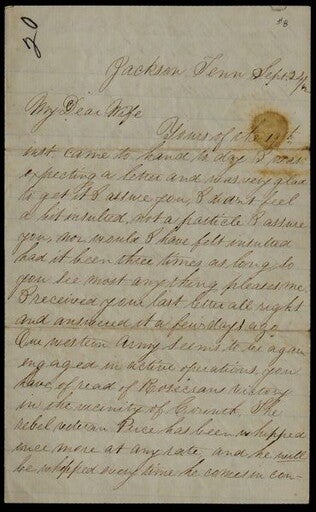 20
Jackson Tenn Sept 24/
My Dear Wife
Yours of the 19th
inst. came to hand to day I was
expecting a letter and was very glad
to get it I assure you, I didn't feel
a bit insulted not a particle I assure
you, nor would I have felt insulted
had it been three times as long, so
you see most anything pleases me
I received your last letter all right
and answered it a few days ago
Our western Army seems to be again
engaged in active operations, you
have of read of Rosicrans victory
in the vicinity of Corinth, The
rebel veteran Price has been whipped
once more at any rate, and he will
be whipped every time he comes in con-